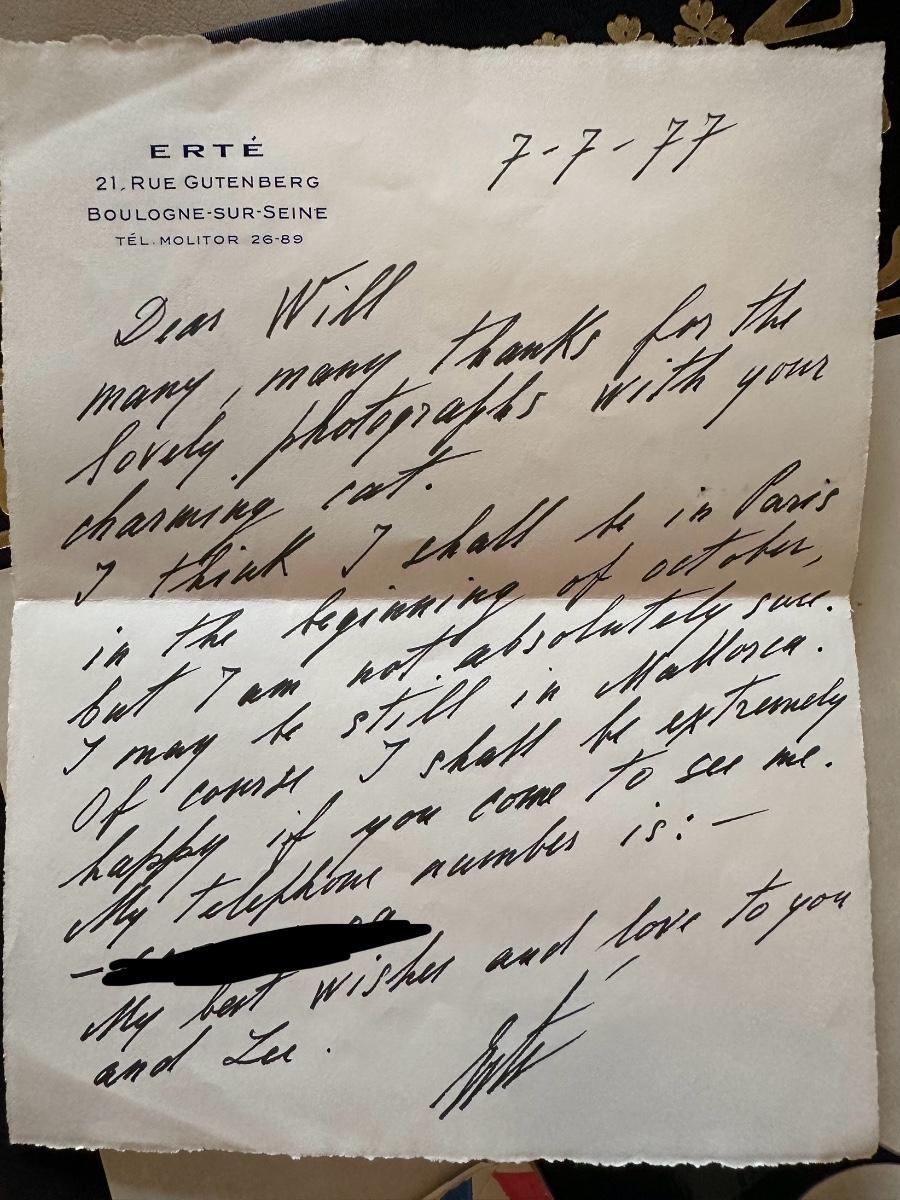 ERTÉ
21, RUE GUTENBERG
BOULOGNE-SUR-SEINE
TÉL. MOLITOR 26-89
7-7-77
Dear Will
many, many thanks for the
lovely photographs with your
charming cat.
I think I shall be in Paris
in the beginning of october,
but I am not absolutely sure.
I may be still in Mallorca.
Of course I shall be extremely
happy if you come to see me.
My telephone number is: —
—
My best wishes and love to you
and Lee.
Erté